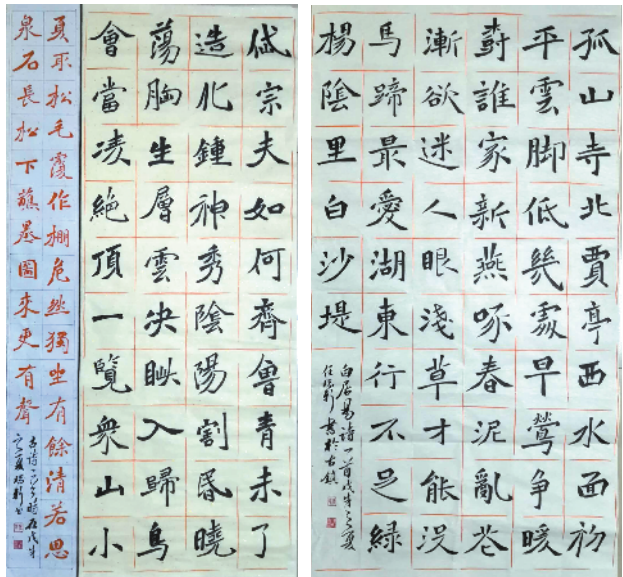 孤山寺北賈亭西水面初
平雲脚低幾處早鶯争暖
樹誰家新燕啄春泥亂花
漸欲迷人眼淺草才能沒
馬蹄最愛湖東行不足綠
楊陰里白沙堤
白居易詩一首戊戌之夏
任書於古鎮
岱宗夫如何齊魯青未了
造化鍾神秀陰陽割昏曉
蕩胸生層雲決眦入歸鳥
會當凌絕頂一覽衆山小
夏取松毛覆作棚危然獨坐有餘清若思
泉石長松下蘸墨圖來更有聲
古詩二首時在戊戌
之夏書